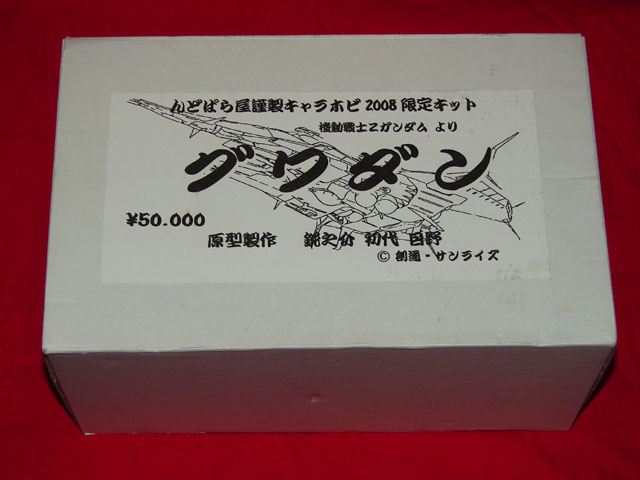 んどぱら屋謹製キャラホビ2008限定キット
機動戦士Zガンダム より
グワダン
¥50.000
原型製作 初代 
© 創通・サンライズ